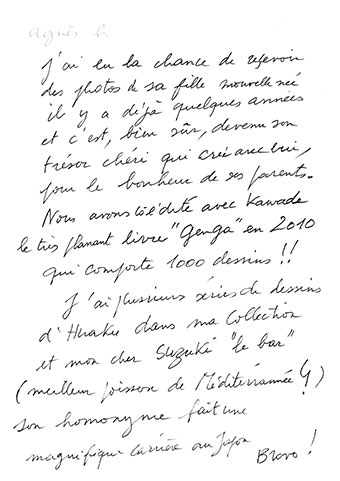 agnès b.
J'ai eu la chance de recevoir
des photos de sa fille nouvelle née
il y a déjà quelques années
et c'est, bien sûr, devenu son
trésor chéri qui crée avec lui,
pour le bonheur de ses parents.
Nous avons coédité avec Kawade
le très planant livre "Genga" en 2010
qui comporte 1000 dessins !!
J'ai plusieurs séries de dessins
d'Huraku dans ma Collection
et mon cher Suzuki "le bar"
(meilleur poisson de Méditerrannée !)
son homonyme fait une
magnifique carrière au Japon
Bravo !